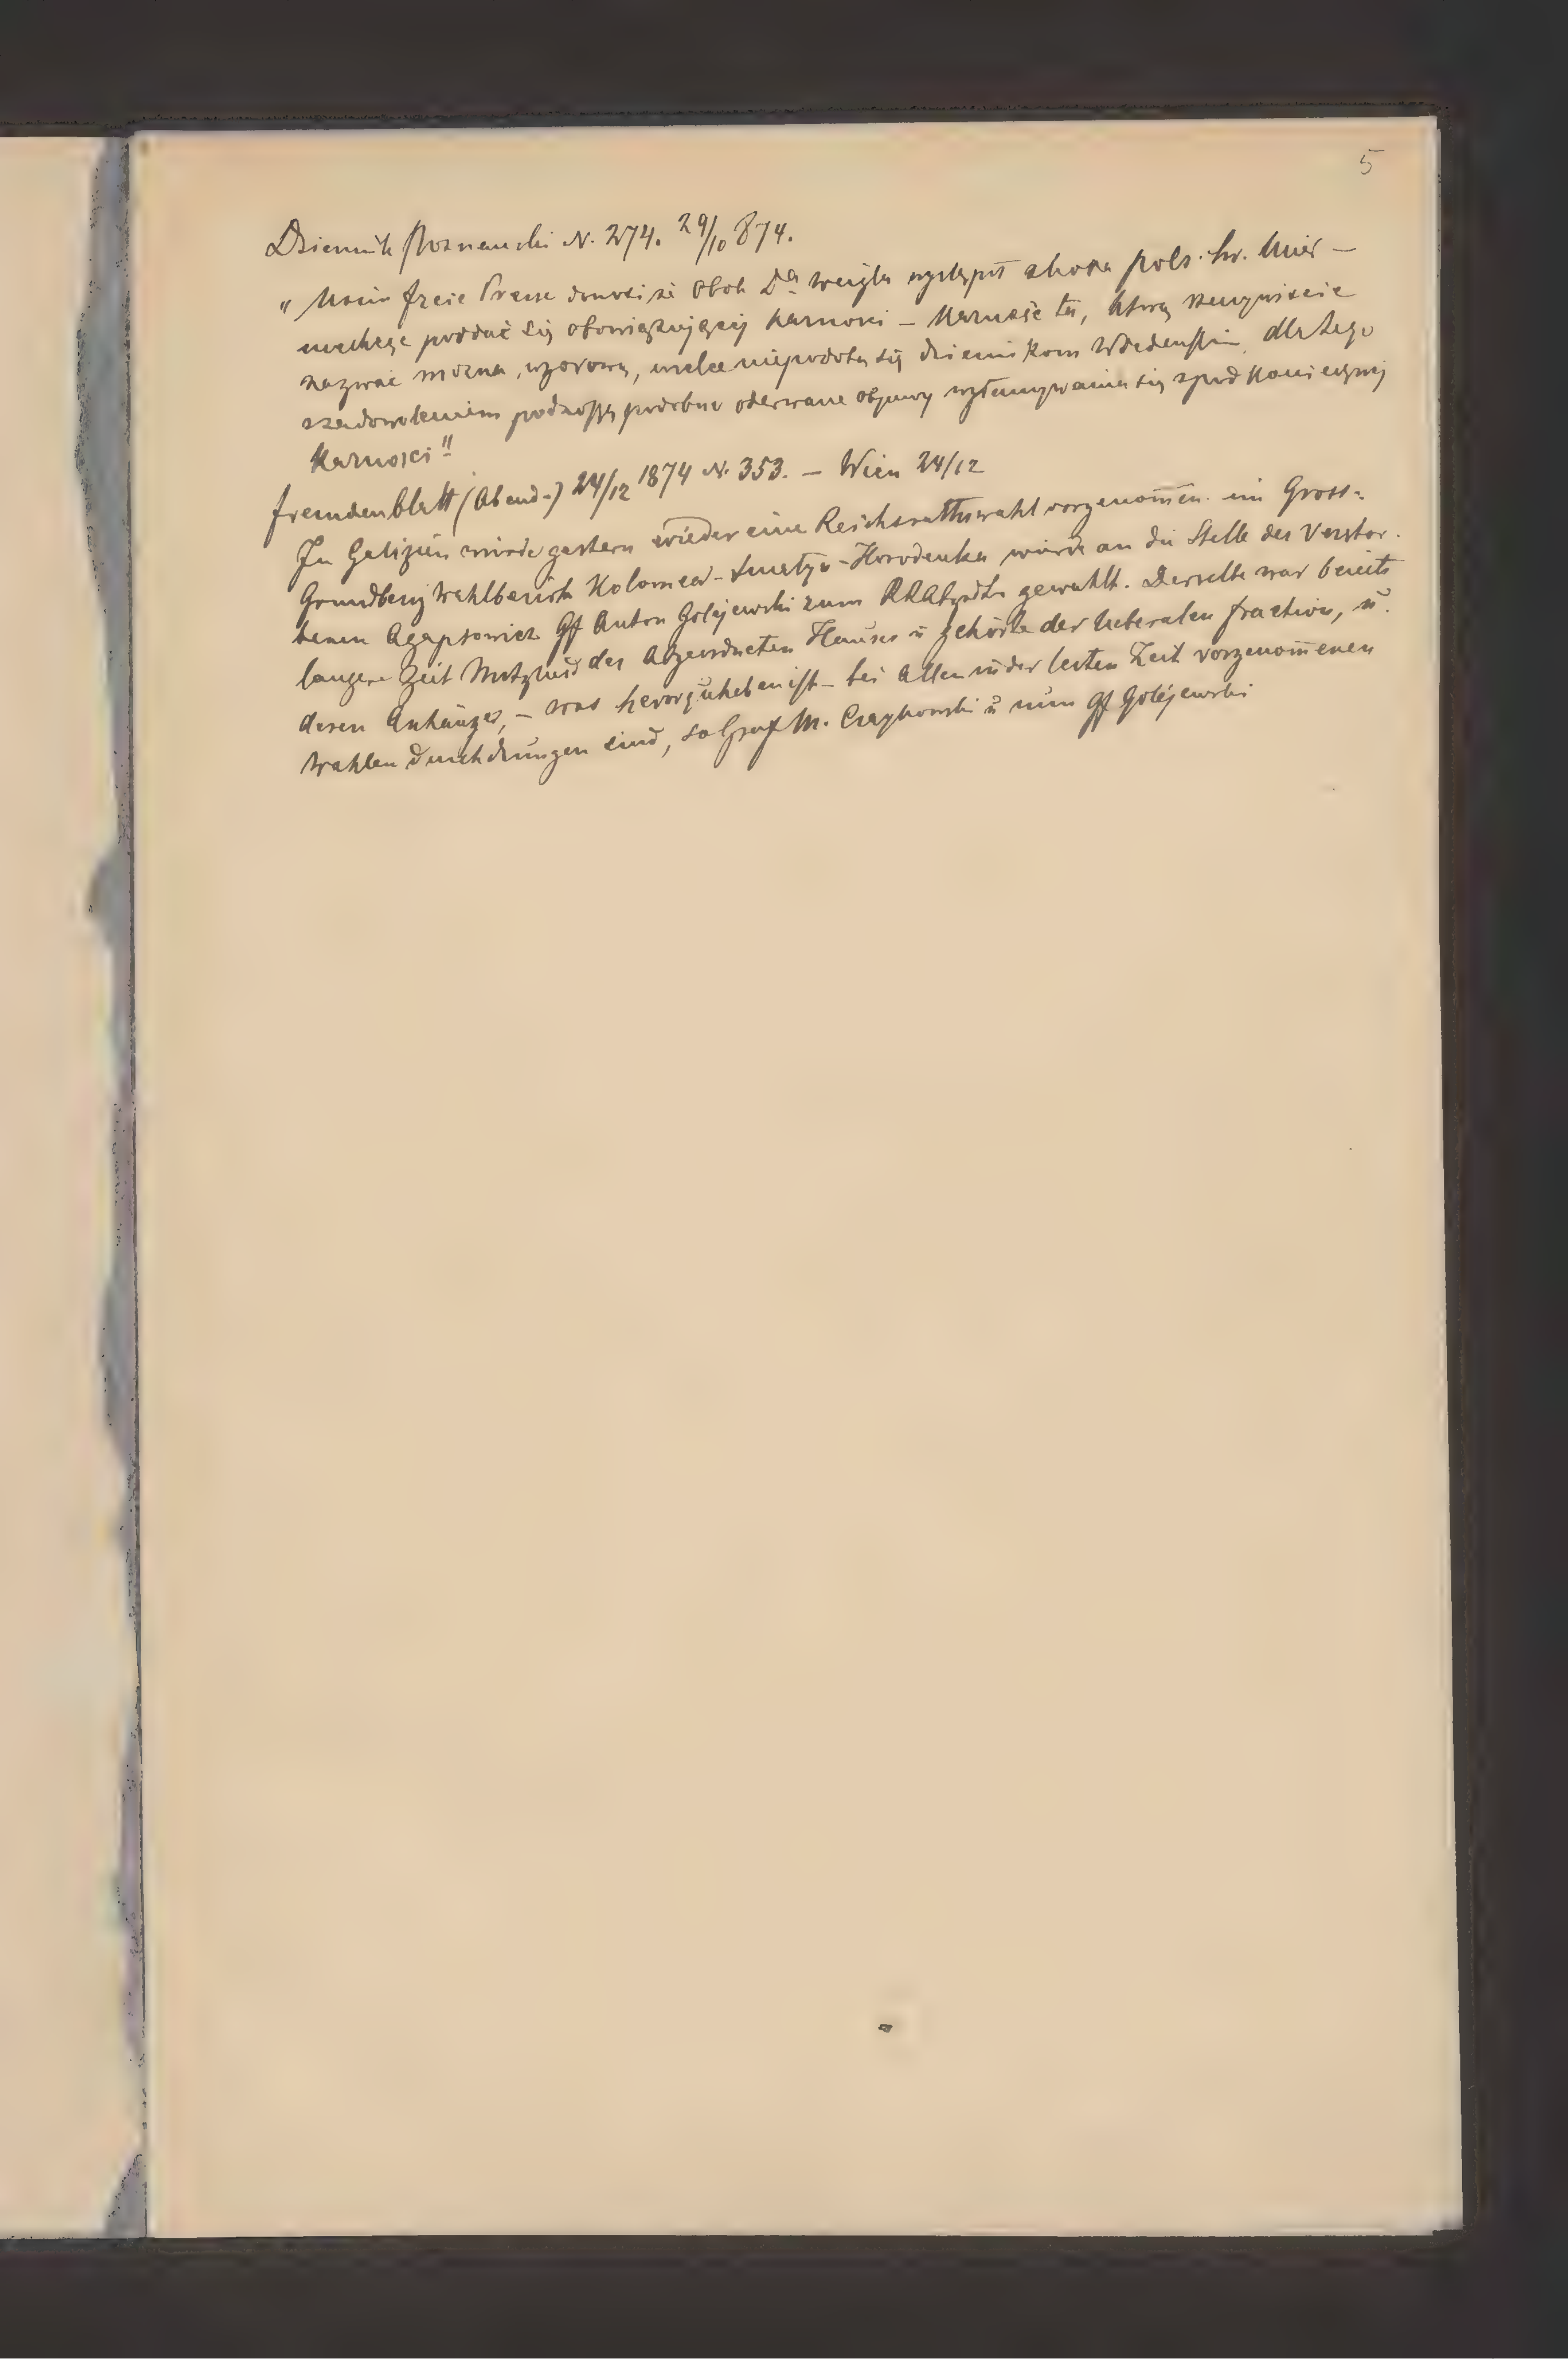 5
Dziennik Poznanski N. 274. 29/10 874.
„Neue freie Presse donosi że obok Dra Weigla wystąpił z koła pols. hr. Mier –
niechcąc poddać się obowiązującéj karności – Karność ta, którą rzeczywiście
nazwać można, wzorową, wielce niepodoba się dziennikom Wiedeńskim, dla tego
z zadowoleniem podnoszą podobne oderwane objawy wyłamywania się z pod koniecznéj
Karności"
Fremdenblatt (Abend-) 24/12 1874 N. 353. – Wien 24/12
In Galizien wurde gestern wieder eine Reichsrathswahl vorgenom̄en. im Gross-
Grundbesitz Wahlbezirk Kolomea - Sniatyn - Horodenka wurde an die Stelle des Verstor-
benen Agopsowicz Gf Anton Golejewski zum gewählt. Derselbe war bereits
längere Zeit Mitglied des Abgeordneten Hauses u gehörte der liberalen Fraction, u.
deren Anhänger, – was hervorzuheben ist – bei allen in der letzten Zeit vorgenom̄enen
Wahlen durchdrungen sind, so Graf M. Czajkowski u nun Gf Golejewski